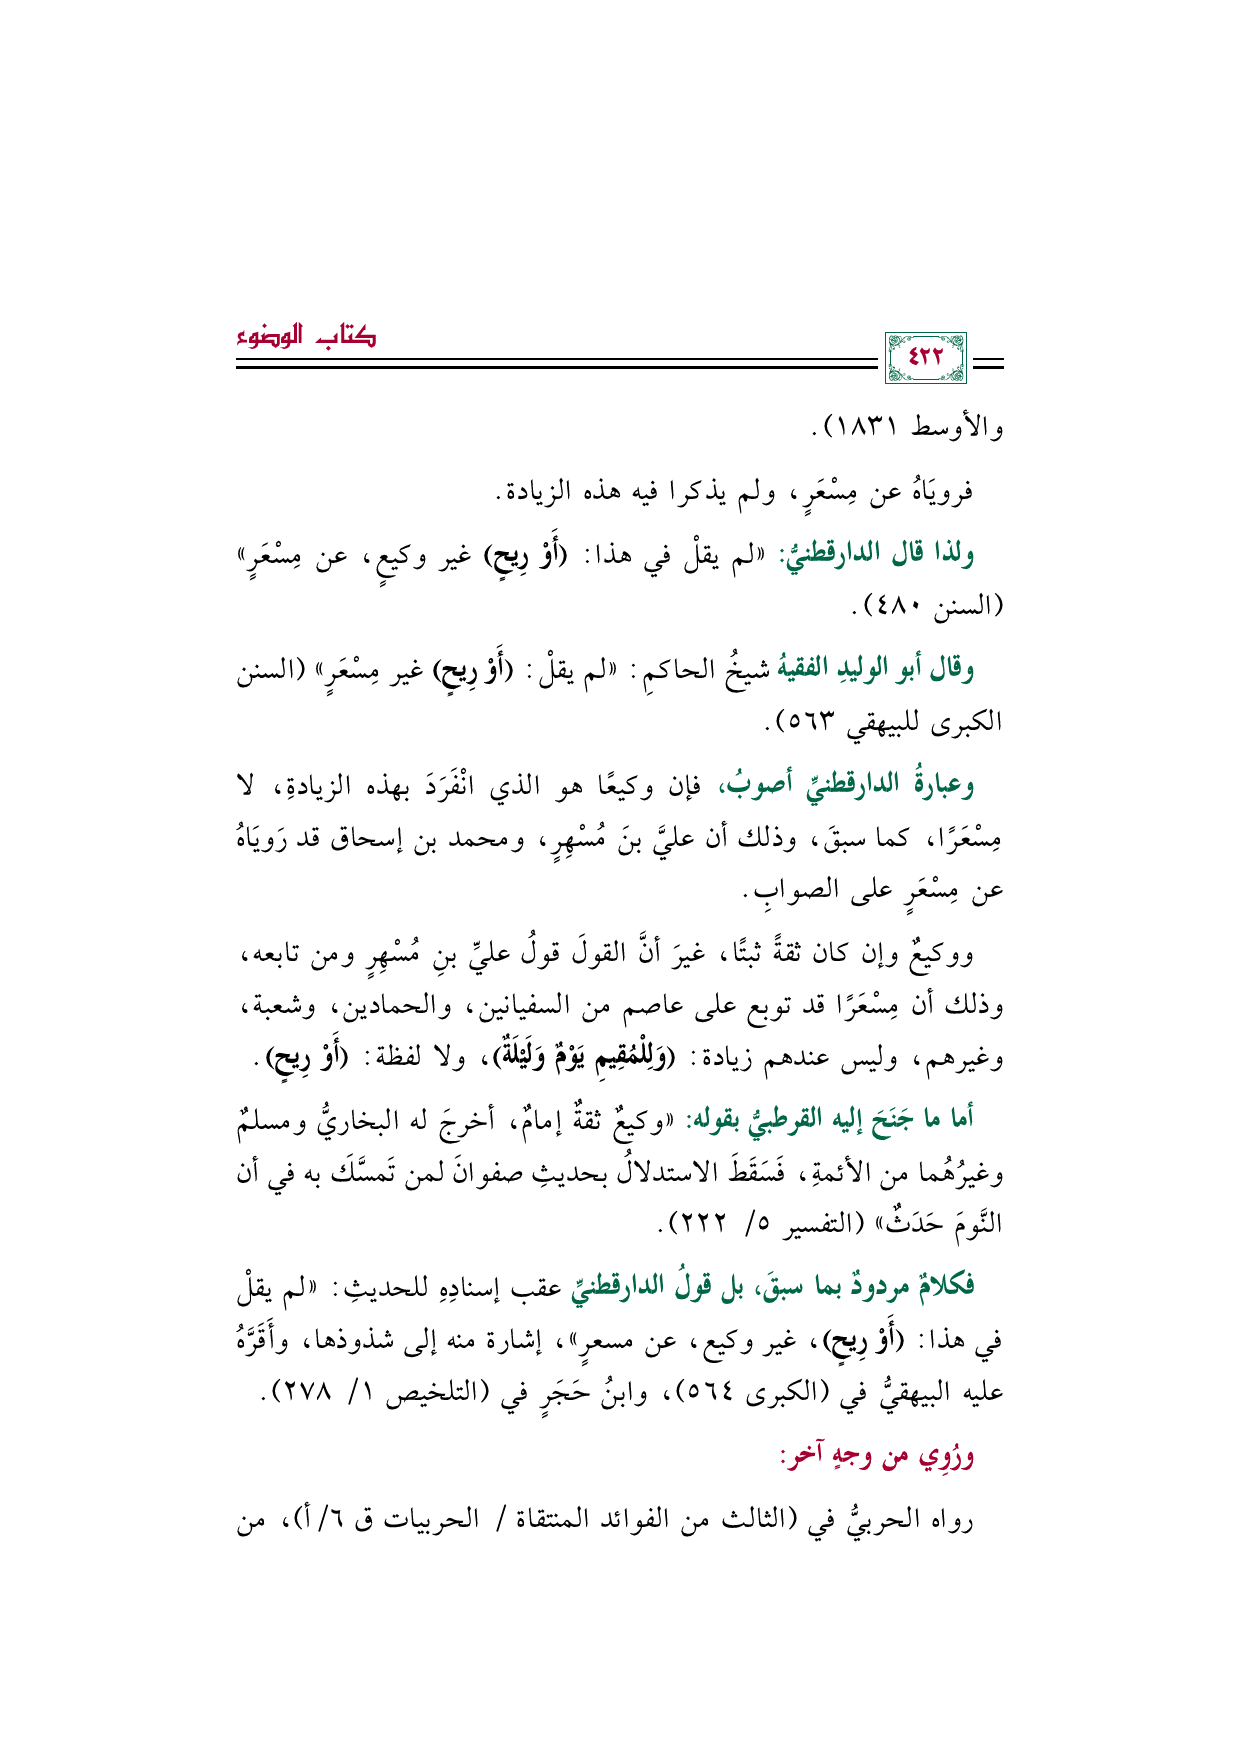 كتاب الوضوء
٤٢٢
والأوسط ١٨٣١).
فرويَاهُ عن مِسْعَرٍ، ولم يذكرا فيه هذه الزيادة.
ولذا قال الدارقطنيُّ: «لم يقلْ في هذا: (أَوْ رِيحٍ) غير وكيعٍ، عن مِسْعَرٍ»
(السنن ٤٨٠).
وقال أبو الوليدِ الفقيهُ شيخُ الحاكمِ: «لم يقلْ: (أَوْ رِيحٍ) غير مِسْعَرٍ» (السنن
الكبرى للبيهقي ٥٦٣).
وعبارةُ الدارقطنيِّ أصوبُ، فإن وكيعًا هو الذي انْفَرَدَ بهذه الزيادةِ، لا
مِسْعَرًا، كما سبقَ، وذلك أن عليَّ بنَ مُسْهِرٍ، ومحمد بن إسحاق قد رَويَاهُ
عن مِسْعَرٍ على الصوابِ.
ووكيعٌ وإن كان ثقةً ثبتًا، غيرَ أنَّ القولَ قولُ عليِّ بنِ مُسْهِرٍ ومن تابعه،
وذلك أن مِسْعَرًا قد توبع على عاصم من السفيانين، والحمادين، وشعبة،
وغيرهم، وليس عندهم زيادة: (وَلِلْمُقِيمِ يَوْمٌ وَلَيْلَةٌ)، ولا لفظة: (أَوْ رِيحٍ).
أما ما جَنَحَ إليه القرطبيُّ بقوله: «وكيعٌ ثقةٌ إمامٌ، أخرجَ له البخاريُّ ومسلمٌ
وغيرُهُما من الأئمةِ، فَسَقَطَ الاستدلالُ بحديثِ صفوانَ لمن تَمسَّكَ به في أن
النَّومَ حَدَثٌ» (التفسير ٥/ ٢٢٢).
فكلامٌ مردودٌ بما سبقَ، بل قولُ الدارقطنيِّ عقب إسنادِهِ للحديثِ: «لم يقلْ
في هذا: (أَوْ رِيحٍ)، غير وكيع، عن مسعرٍ»، إشارة منه إلى شذوذها، وأَقَرَّهُ
عليه البيهقيُّ في (الكبرى ٥٦٤)، وابنُ حَجَرٍ في (التلخيص ١/ ٢٧٨).
ورُوِي من وجهٍ آخر:
رواه الحربيُّ في (الثالث من الفوائد المنتقاة / الحربيات ق ٦/أ)، من